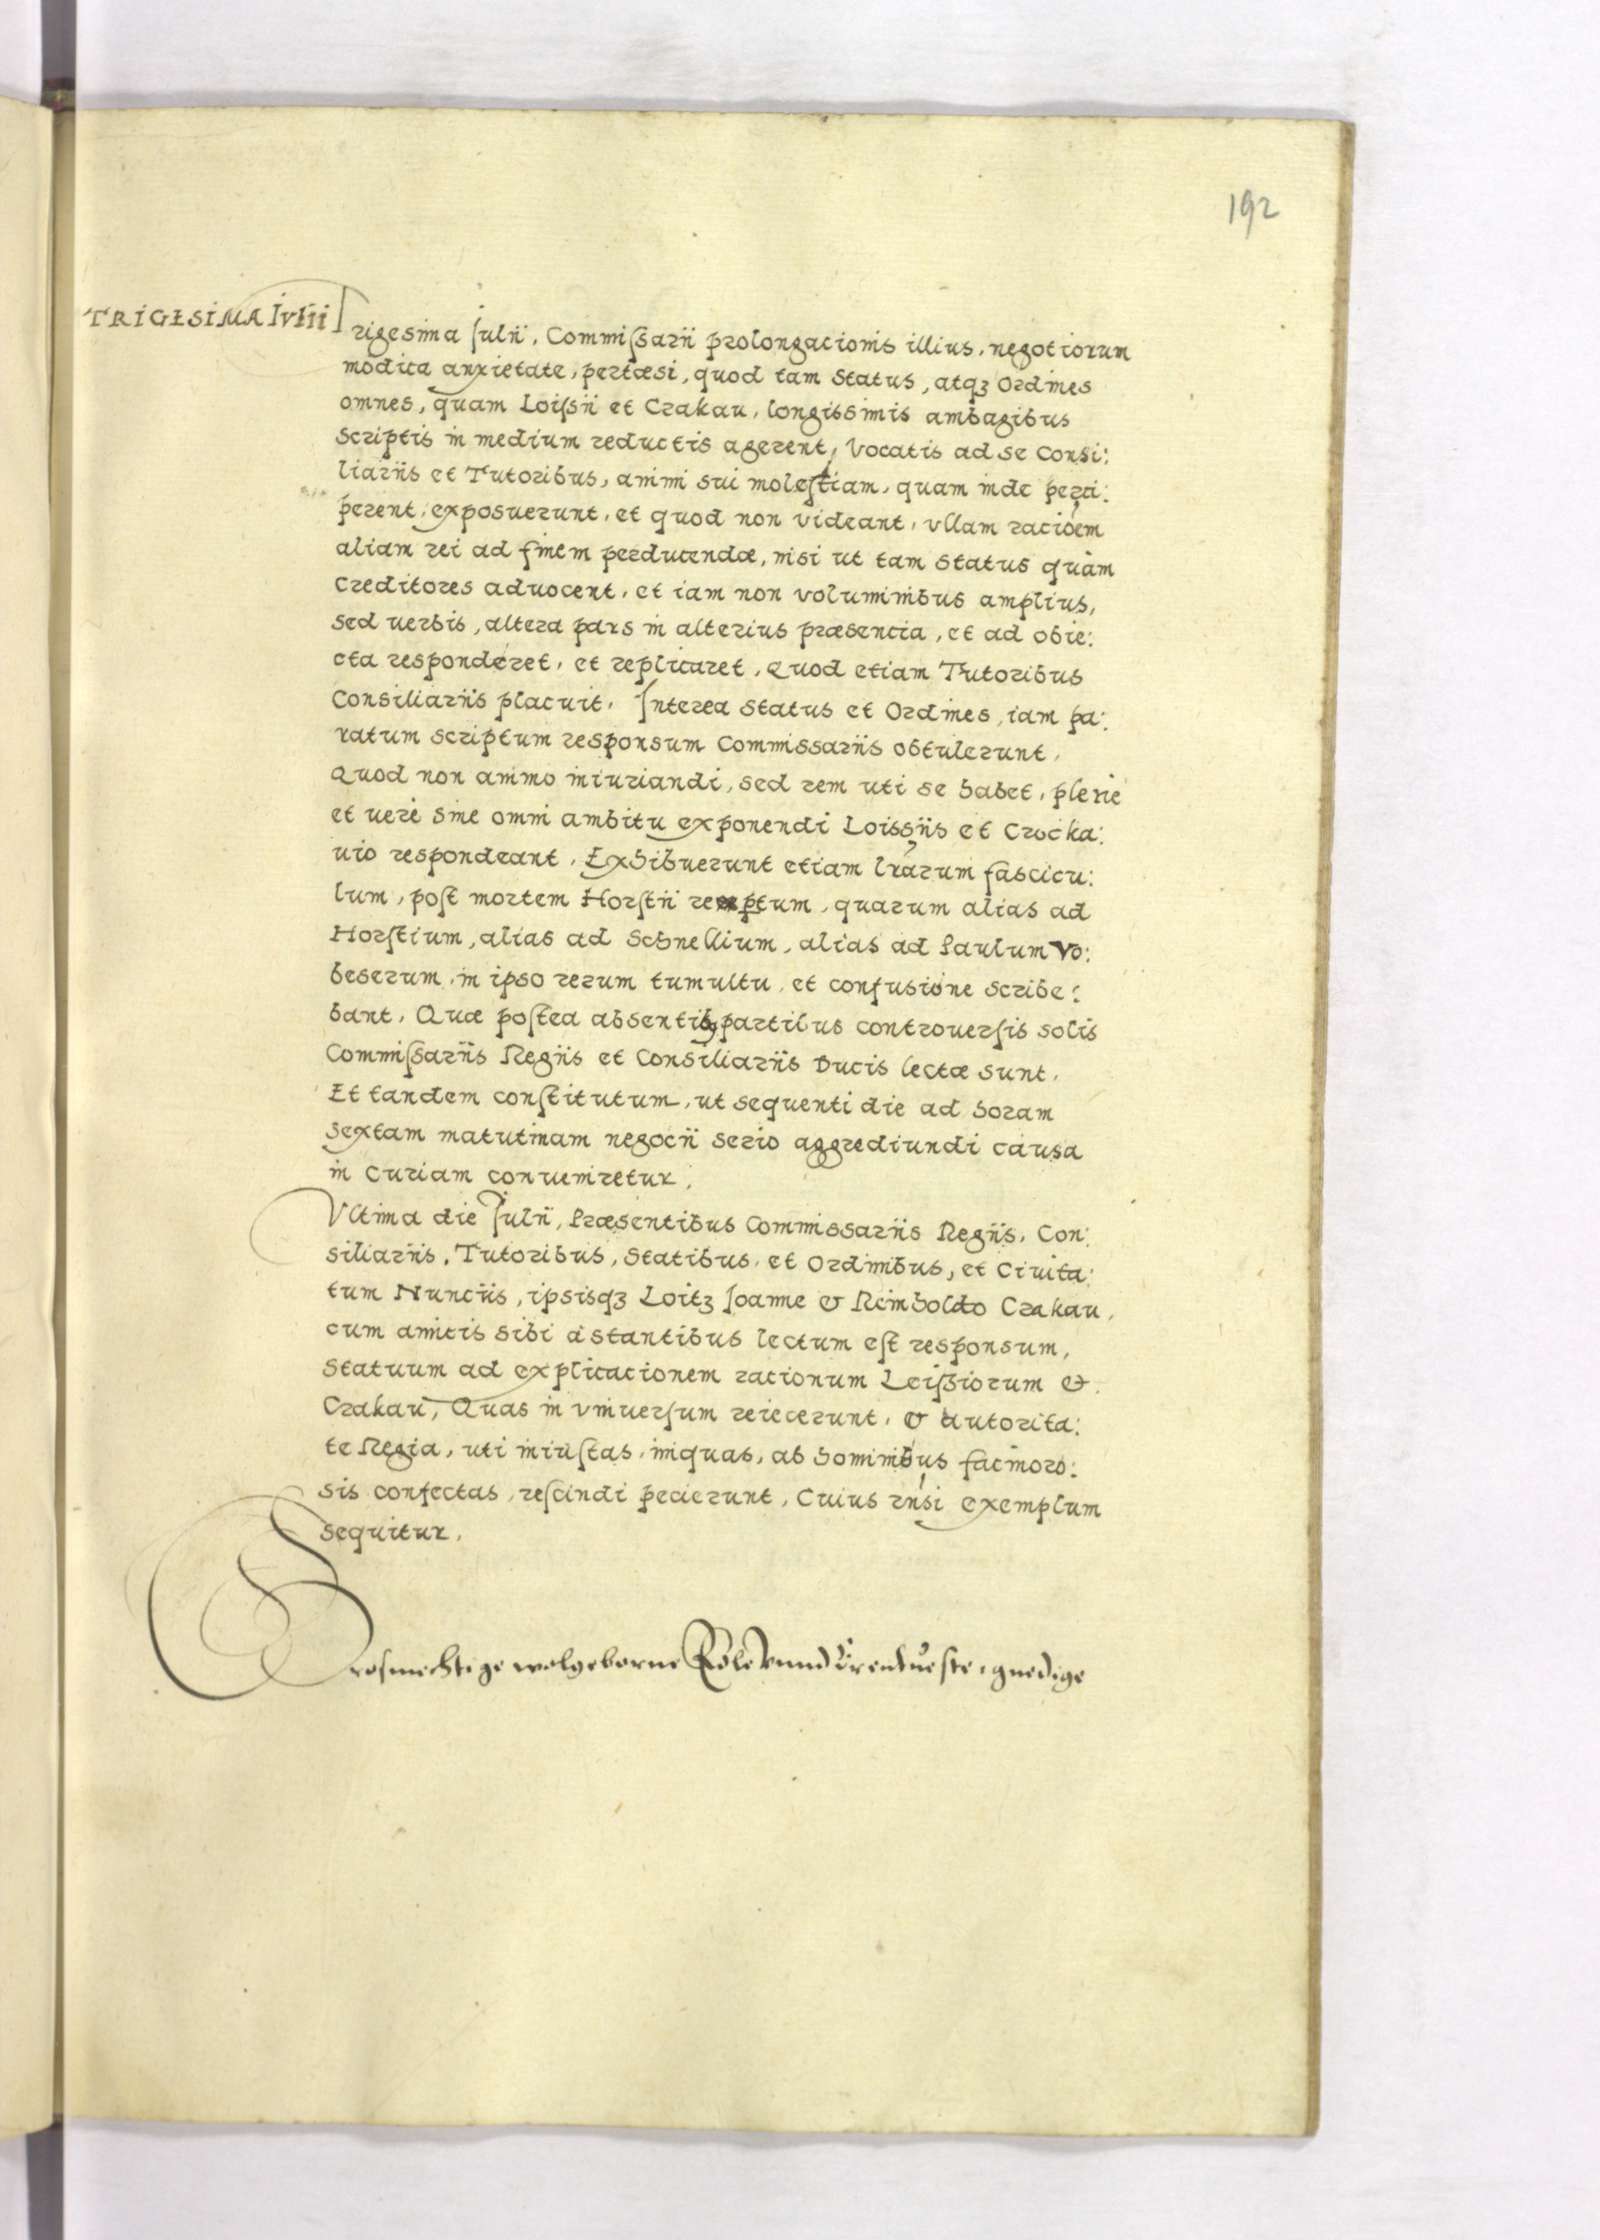 192
TRIGESIMA IVlii
Trigesima Julii, Commissarii prolongacionis illius, negotiorum
modica anxietate, pertæsi, quod tam Status, atqꝫ Ordines
omnes, quam Loissii et Crakau, longissimis ambagibus
Scriptis in medium reductis agerent, Vocatis ad se Consi:
liariis et Tutoribus, animi sui molestiam, quam inde perci:
perent, exposuerunt, et quod non videant, vllam racioem
aliam rei ad finem perducendæ, nisi ut tam Status quam
Creditores aduocent, et iam non voluminibus amplius,
sed uerbis, altera pars in alterius præsencia, et ad obie:
cta responderet, et replicaret, Quod etiam Tutoribus
Consiliariis placuit. Interea Status et Ordines, iam pa:
ratum scriptum responsum Commissariis obtulerunt,
Quod non animo iniuriandi, sed rem uti se habet, plene
et uere sine omni ambitu exponendi Loissiis et Crocka:
uio respondeant, Exhibuerunt etiam lrarum fascicu:
lum, post mortem Horstii reptum, quarum alias ad
Horstium, alias ad Schnellium, alias ad Paulum Vo:
beserum, in ipso rerum tumultu, et confusione scribe:
bant, Quæ postea absentibꝯ partibus controuersis solis
Commissariis Regiis et Consiliariis Ducis lectæ sunt,
Et tandem constitutum, ut sequenti die ad horam
sextam matutinam negocii serio aggrediundi causa
in Curiam conueniretur,
Vltima die Julii, Præsentibus Commissariis Regiis, Con:
siliariis, Tutoribus, Statibus, et Ordinibus, et Ciuita:
tum Nunciis, ipsisqꝫ Loitz Joanne & Reinholdo Crakau,
cum amicis sibi astantibus lectum est responsum,
Statuum ad explicacionem racionum Leißiorum &
Crakau, Quas in vniuersum reiecerunt, & autorita:
te Regia, uti iniustas, iniquas, ab hominibus facinoro:
sis confectas, rescindi pecierunt, Cuius rnsi exemplum
sequitur,
Grosmechtige wolgeborne Edle vnnd Erentueste, gnedige